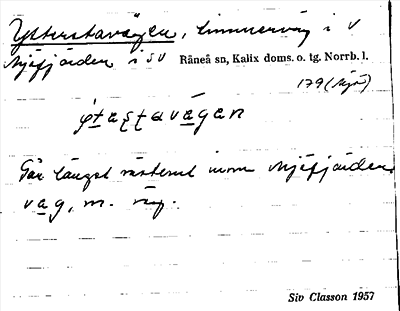 Ytterstavägen, timmerväg i V
Mjöfjärden i SV Råneå sn, Kalix doms. o. tg. Norrb. l.
179 (Mjö)
Går längst västerut inom Mjöfjärden.
väg, m.
Siv Classon 1957